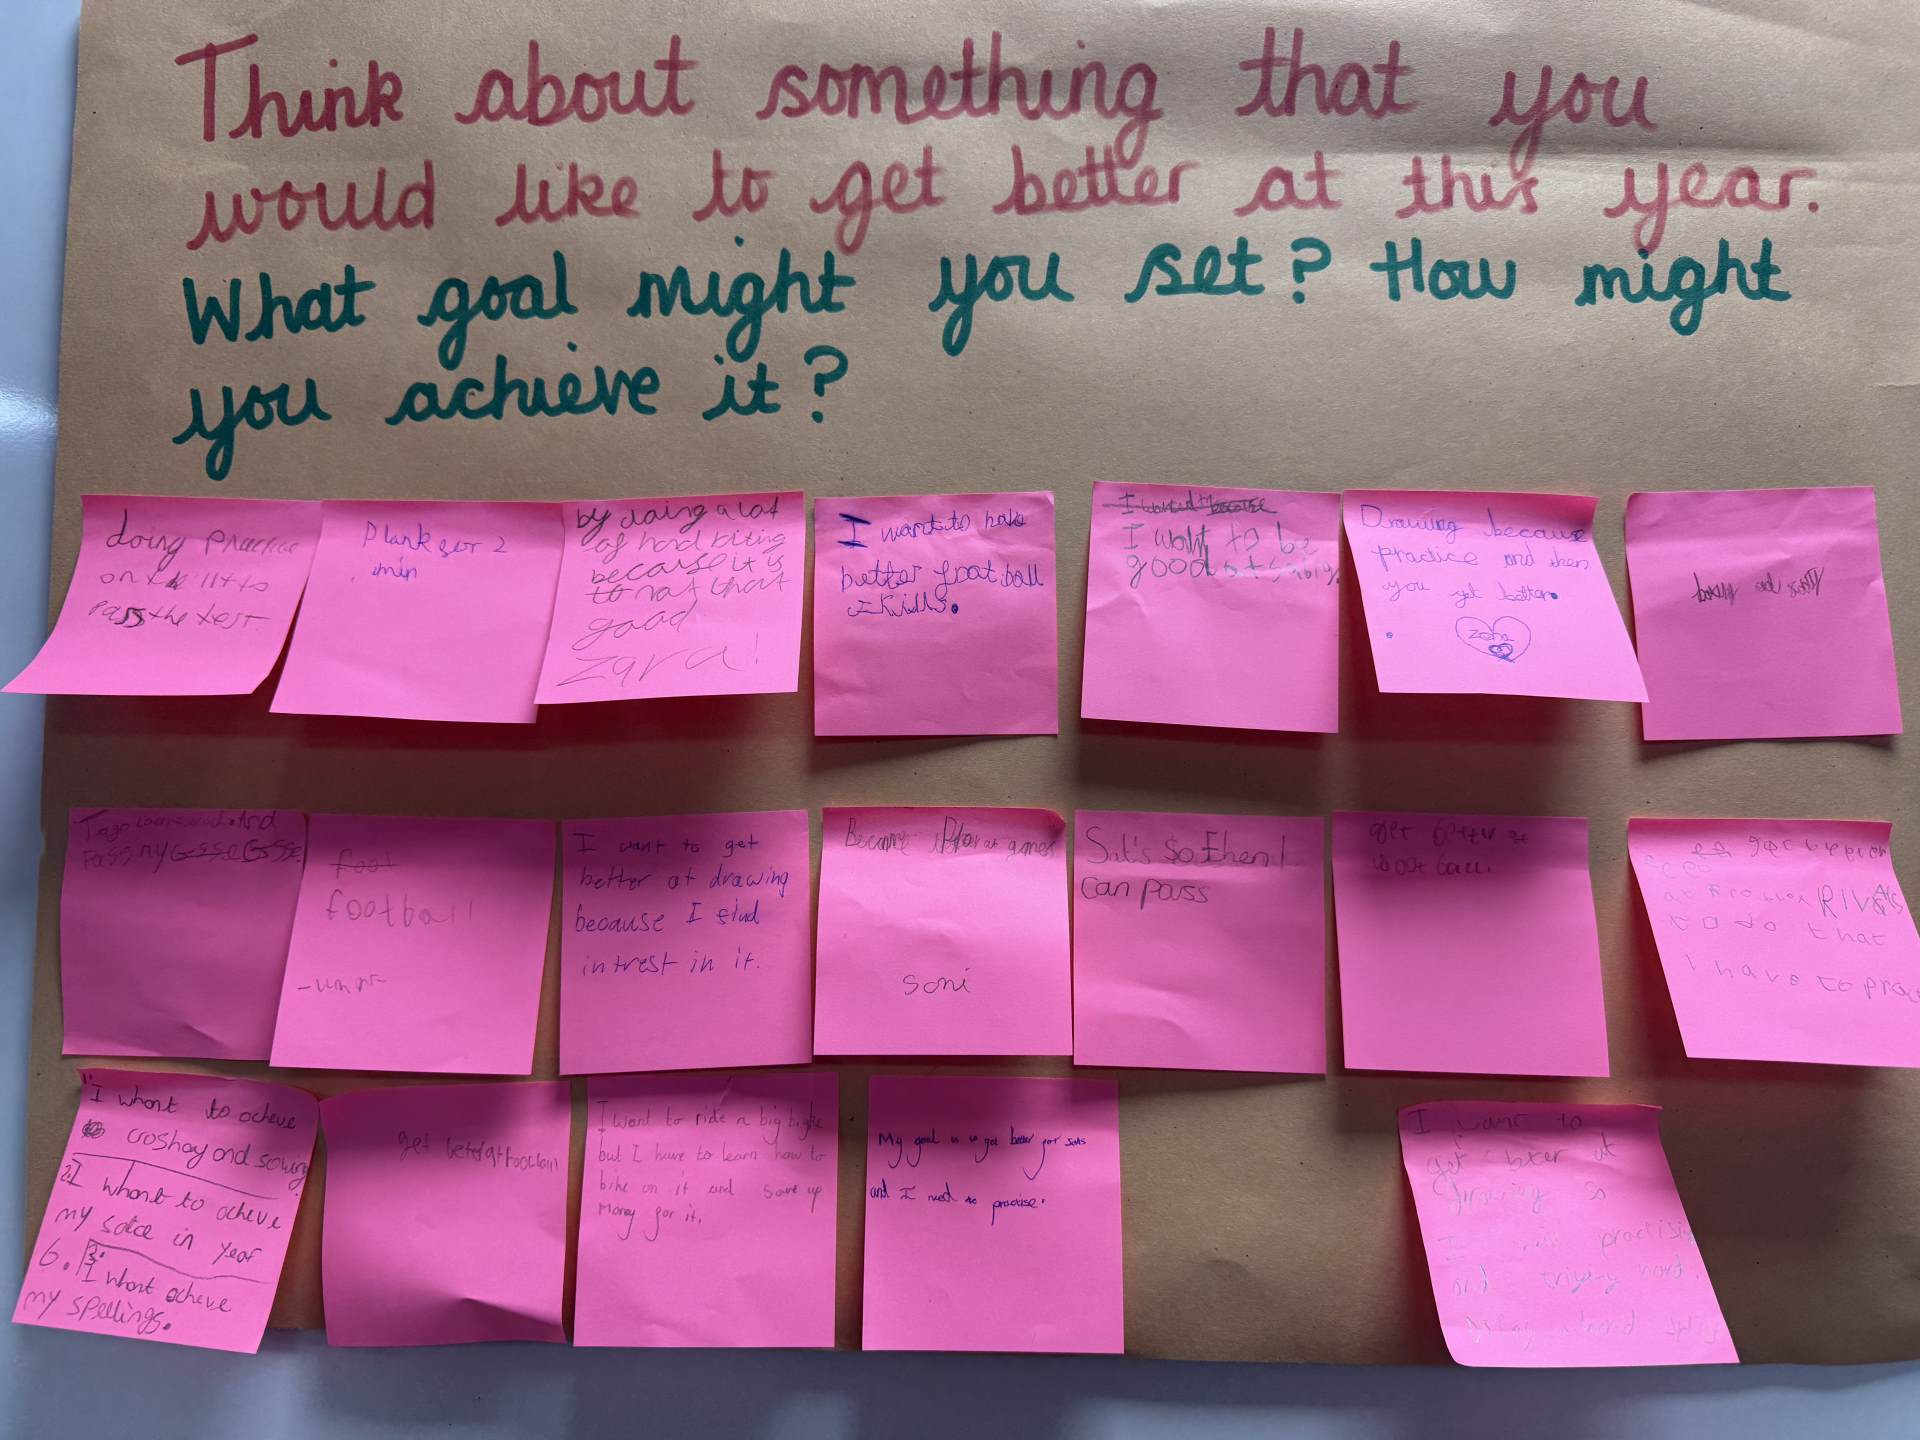 Think about something that you
would like to get better at this year.
What goal might you set? How might
you achieve it?
doing practice
on
pass the test.
Plank for 2
min
by doing a lot
of hard
because it is
to not that
good
zara!
I want to have
better football
skills.
I want because
I want to be
good at
Drawing because
practice and then
you get better.
zara
And
Pass my
foot
football
I want to get
better at drawing
because I find
intrest in it.
Become at games
soni
Sat's So then I
can pass
get better at
football.
get better
at RIVALS
to do that
I have to prac
"I whant to acheve
croshay and sowing
2.I whant to acheve
my in year
6. 3.
I whant acheve
my spellings.
get better at football
I want to ride a big bike
but I have to learn how to
bike on it and save up
money for it.
My goal is to get better for sats
and I need to practise.
I want to
get beter at
drawing so
I will practising
and trying hard.